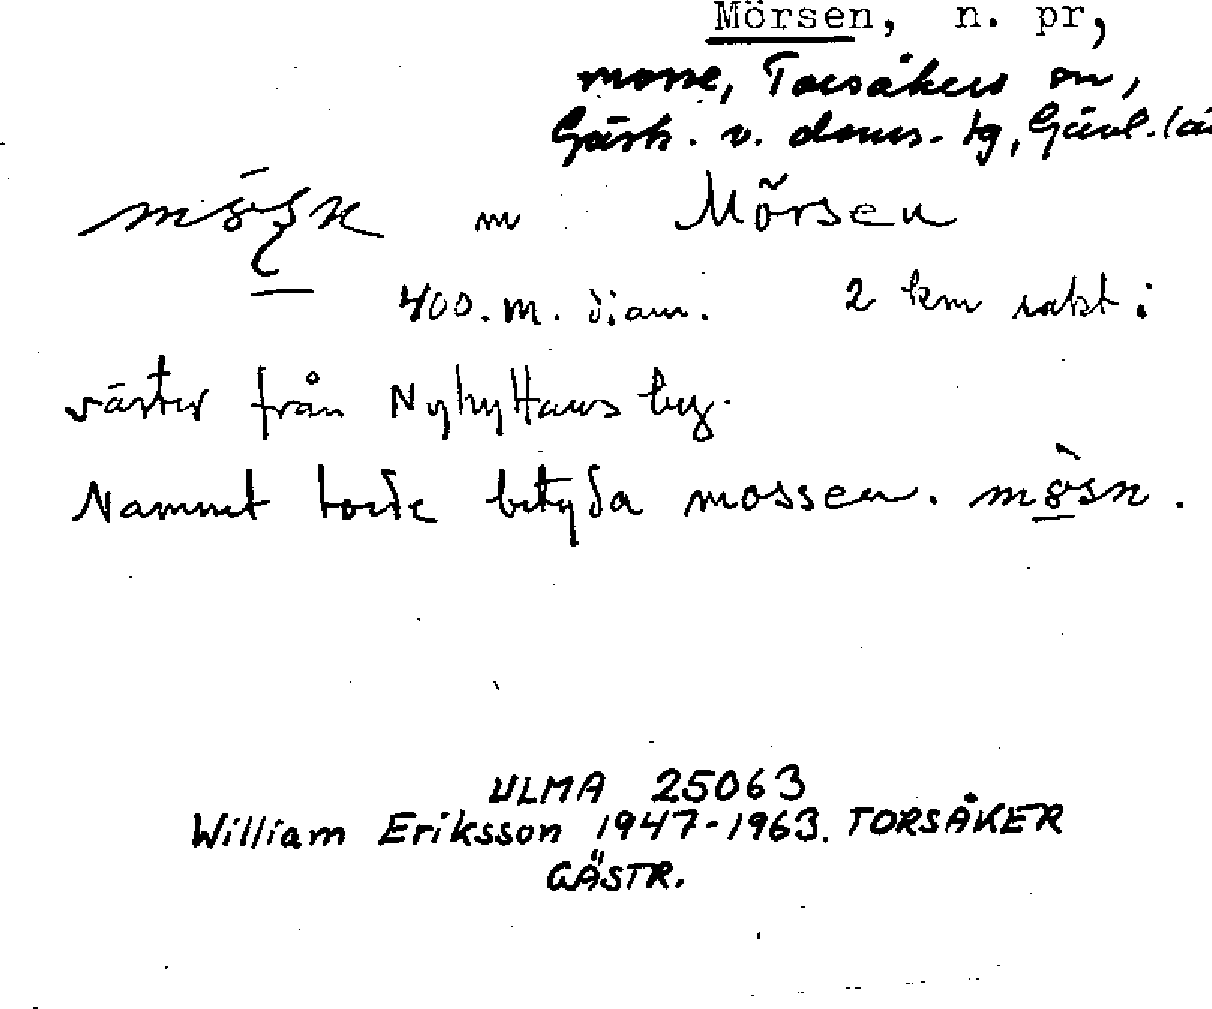 Mörsen, n. pr,
mosse, Torsåkers sn,
Gästr. v. doms. tg, Gävl. lä
m Mörsen
400. m. diam. 2 km rakt i
väster från Nyhyttans by.
Namnet torde betyda mossen. mösn.
ULMA 25063
William Eriksson 1947-1963. TORSÅKER
GÄSTR.